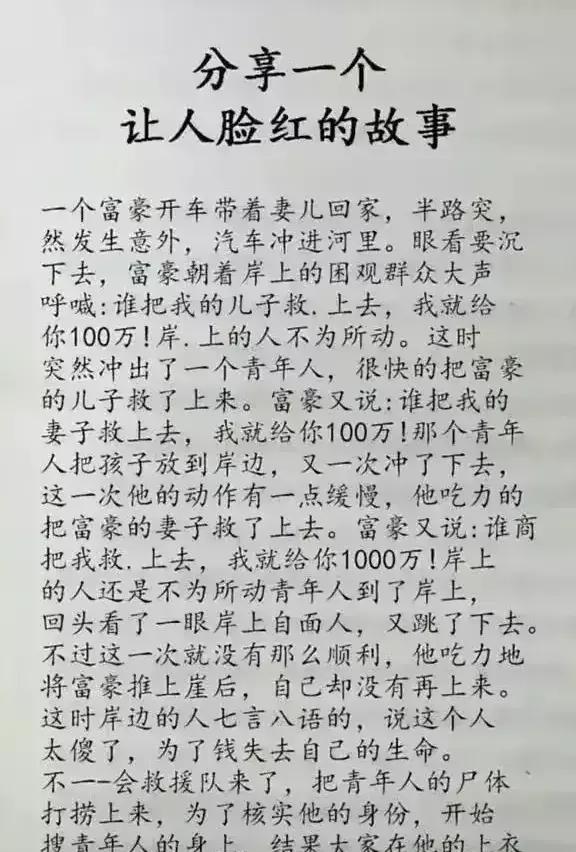 分享一个
让人脸红的故事
一个富豪开车带着妻儿回家，半路突，
然发生意外，汽车冲进河里。眼看要沉
下去，富豪朝着岸上的困观群众大声
呼喊:谁把我的儿子救.上去，我就给
你100万!岸.上的人不为所动。这时
突然冲出了一个青年人，很快的把富豪
的儿子救了上来。富豪又说:谁把我的
妻子救上去，我就给你100万!那个青年
人把孩子放到岸边，又一次冲了下去，
这一次他的动作有一点缓慢，他吃力的
把富豪的妻子救了上去。富豪又说:谁商
把我救.上去，我就给你1000万!岸上
的人还是不为所动青年人到了岸上，
回头看了一眼岸上自面人，又跳了下去。
不过这一次就没有那么顺利，他吃力地
将富豪推上崖后，自己却没有再上来。
这时岸边的人七言八语的，说这个人
太傻了，为了钱失去自己的生命。
不一一会救援队来了，把青年人的尸体
打捞上来，为了核实他的身份，开始
搜青年人的身上，结果大家在他的上衣